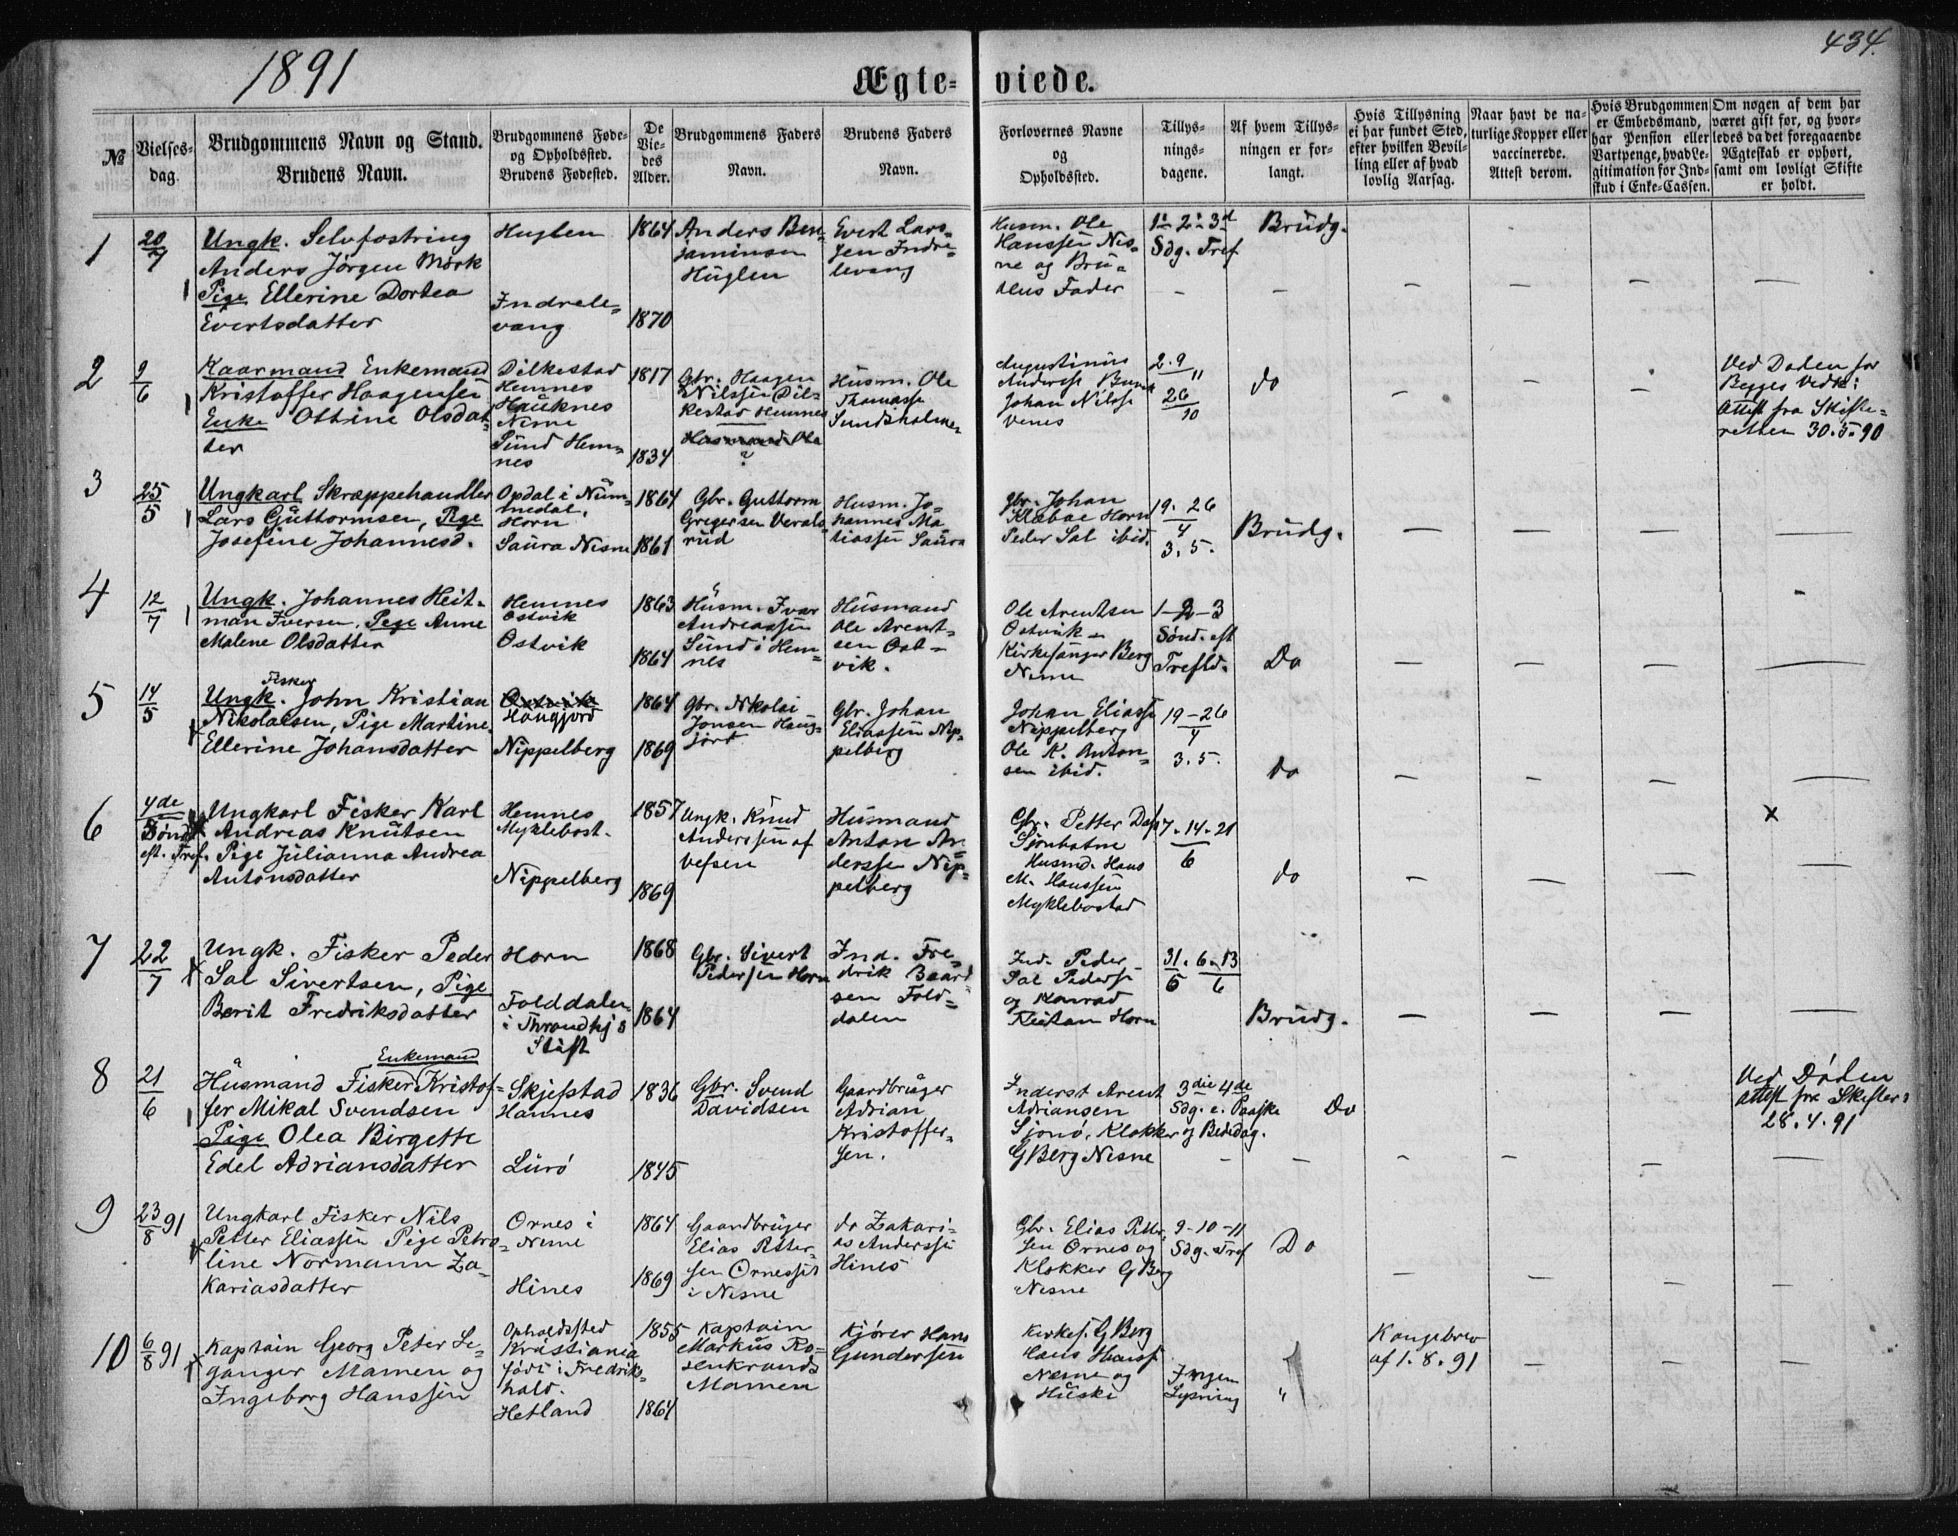 1891
Ægte-
viede.
434.
№
Vielses-
dag.
Brudgommens Navn og Stand.
Brudens Navn.
Brudgommens Føde-
og Opholdssted.
Brudens Fødested.
De
Vie-
des
Alder.
Brudgommens Faders
Navn.
Brudens Faders
Navn.
Forlovernes Navne
og
Opholdssted.
Tillys-
nings-
dagene.
Af hvem Tillys-
ningen er for-
langt.
Hvis Tillysning
ei har fundet Sted,
efter hvilken Bevil-
ling eller af hvad
lovlig Aarsag.
Naar havt de na-
turlige Kopper eller
vaccinerede.
Attest derom.
Hvis Brudgommen
er Embedsmand,
har Pension eller
Vartpenge, hvad Le-
gitimation for Ind-
skud i Enke-Cassen.
Om nogen af dem har
været gift for, og hvor-
ledes da det foregaaende
Ægteskab er ophørt,
samt om lovligt Skifte
er holdt.
1
20/7
Ungk. Selvfostring
Anders Jörgen Mørk
Pige Ellerine Dortea
Evertsdatter
Huglen
Indrele-
vang
1864
1870
Anders Ben-
jaminsen
Huglen
Evert Lars-
sen Indre-
levang
Husm. Ole
Hanssen Nes-
ne og Bru-
dens Fader
1. 2. 3d
Sdg. Tref
Brudg.
2
9/6
Kaarmand Enkemand
Kristoffer Haagensen
Enke Ottine Olsdat-
ter
Dilkestad
Hemnes
Hauknes
Nesne
Sund Hem-
nes
1817
1834
Gbr. Haagen
Nilssen Dil-
kestad Hemnes
Husmand Ole
?
Husm. Ole
Thomasse
Sundsholme
Augustinus
Anderss
Johan Nilss
Venes
2. 9/11
26/10
do
Ved Døden for
Begges Vedk:
Attest fra Skifte-
retten 30.5.90
3
25/5
Ungkarl Skræppehandler
Lars Guttormsen, Pige
Josefine Johannesd.
Opdal i Num-
medal,
Horn
Saura Nesne
1864
1861
Gbr. Guttorm
Gregersen Verals
rud
Husm. Jo-
hannes Ma
tiassen Saura
Gbr. Johan
Klæboe Horn
Peder Sal ibid.
19. 26/4
3. 5.
Brudg.
4
12/7
Ungk. Johannes Heit-
man Iversen, Pige Anne
Malene Olsdatter
Hemnes
Østvik
Østvik
1863
1864
Husm. Ivar
Andreassen
Sund i Hem-
nes
Husmand
Ole Arent-
sen Øst-
vik.
Ole Arentsen
Østvik
Kirkesanger Berg
Nesne
1-2-3
Sønd. eft
Trefld.
Do
5
14/5
Fisker
Ungk. John Kristian
Nikolaisen, Pige Martine
Ellerine Johansdatter
Østvik
Haugjord
Nippelberg
1864
1869
Gbr. Nikolai
Jonsen Haug-
jord
Gbr. Johan
Eliassen Nip-
pelberg
Johan Eliasse
Nippelberg
Ole K. Anton-
sen ibid.
19-26/4
3. 5.
do
6
4de
Sønd.
eft. Tref.
Ungkarl Fisker Karl
Andreas Knutsen
Pige Julianna Andrea
Antonsdatter
Hemnes
Myklebost.
Nippelberg
1857
1869
Ungk. Knud
Anderssen af
Vefsen
Husmand
Anton An
derssen Nip-
pelberg
Gbr. Petter Dass
Sjonbotne
Husmd. Hans
M. Hanssen
Myklebostad
7. 14. 21
6
do
x
7
22/7
Ungk. Fisker Peder
Sal Sivertsen, Pige
Berit Fredriksdatter
Horn
Folddalen
i Throndhj s
Stift
1868
1864
Gbr. Sivert
Pedersen Horn
Ind. Fre-
drik Baard
sen Fold-
dalen
Ind. Peder
Sal Peders
og Konrad
Kristian Horn
31/5. 6. 13/6
Brudg.
8
21/6
Enkemand
Husmand Fisker Kristof-
fer Mikal Svendsen
Pige Olea Birgette
Edel Adriansdatter
Skjefstad
Hannes
Lurø
1836
1845
Gbr. Svend
Davidsen
Gaardbruger
Adrian
Kristoffer-
sen.
Inderst Arent
Adriansen
Sjonø, Klokker
G Berg Nesne
3die 4de
Sdg. e. Paaske
og Bededag.
Do
Ved Døden
attest fra Skifter:
28.4.91
9
23/8 91
Ungkarl Fisker Nils
Petter Eliassen Pige Petro-
line Normann Za-
kariasdatter
Ørnes i
Nesne
Hines
1864
1869
Gaardbruger
Elias Petter-
sen Ørnesset
i Nesne
do Zakari-
as Anderssen
Hines
Gbr. Elias Petter
sen Ørnes og
Klokker G Berg
Nesne
9-10-11
Sdg. e. Tref
Do
10
6/8 91
Kaptain Georg Peter Le-
ganger Mamen og
Ingeborg Hanssen
Opholdssted
Kristiania
født i Fredriks-
hald.
Hetland
1855
1864
Kaptain
Markus Ro-
senkrands
Mamen
Kjører Hans
Gundersen
Kirkes. G Berg
Hans Hanss
Nesne og
Ingen
Lysning
"
Kongebrev
af 1.8.91